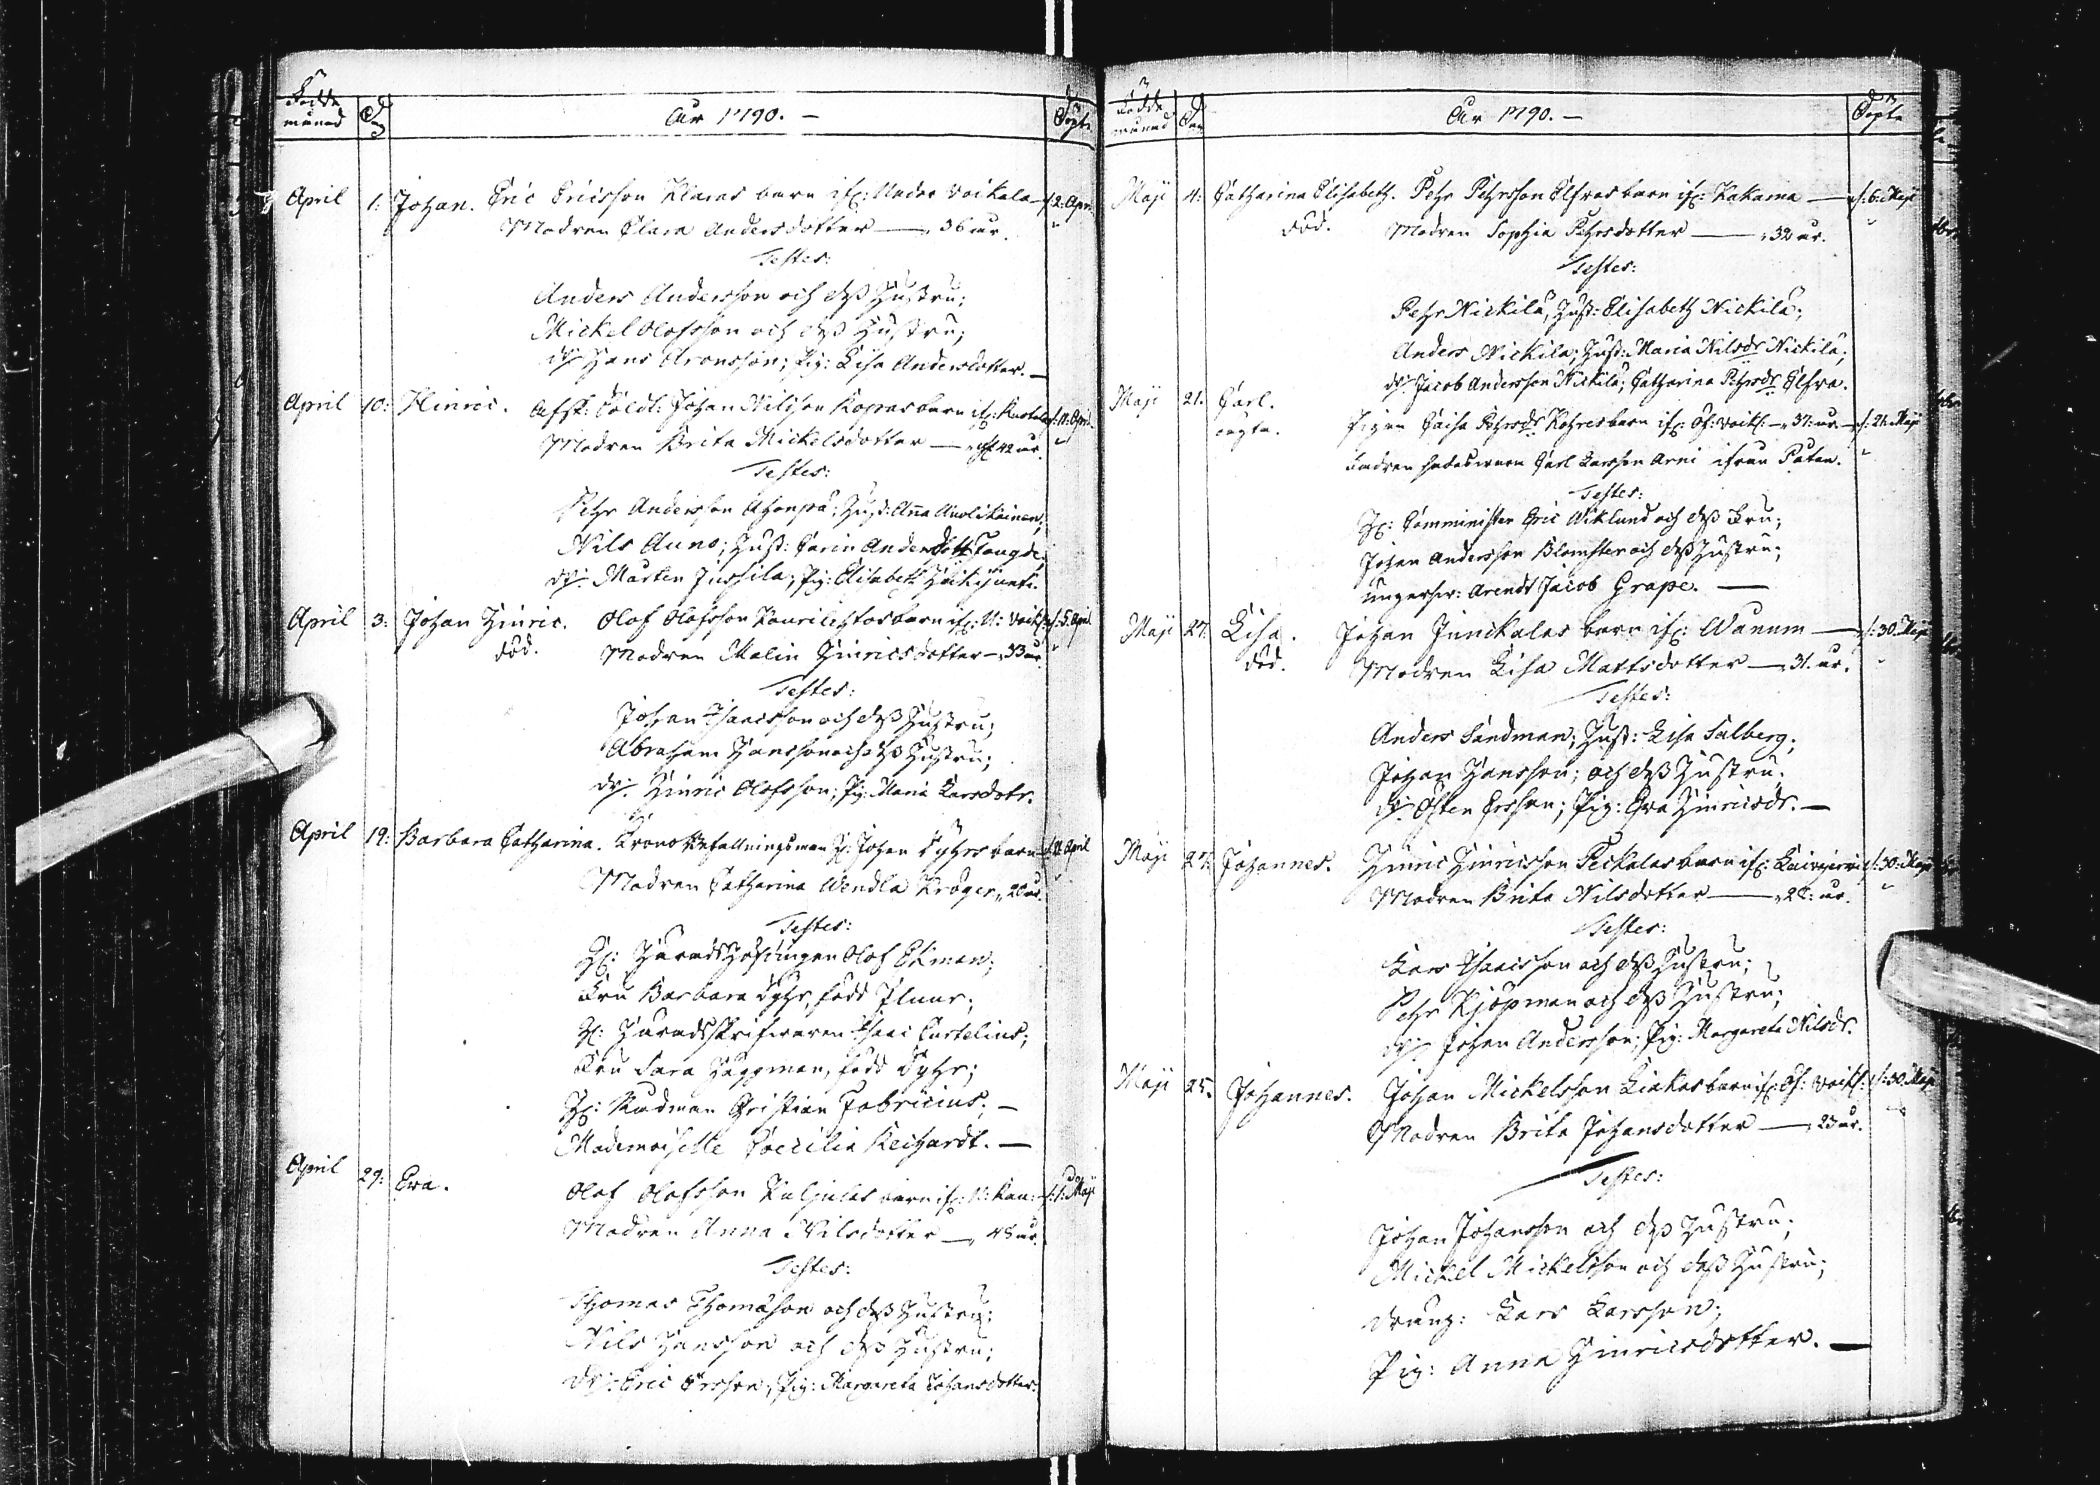 Födde månad
Dag
År 1790. —
Döpte
April 1: Johan. Eric Ericsson Klaras barn if: Neder Voikala — d: 2. Apri.
Modren Clara Andersdotter — 36 år.
Testes:
Anders Andersson och dess Hustru;
Mickel Olofsson och dess Hustru;
dr: Hans Aronsson; Pig: Lisa Andersdotter. —
April 10: Hinric. Afsk: Sold: Johan Nilsson barn if: d: 11. April
Modren Brita Mickelsdotter — 42 år.
Testes:
Pehr Andersson; Hust: Anna
Nils Auno; Hust: Carin Andersdott
dr: Mårten Jussila; Pig: Elisabeth
April 3: Johan Hinric. Olof Olofsson barn if: N: Voik: d: 5. April
död. Modren Malin Hinricsdotter — 33 år.
Testes:
Johan Isaacsson och dess Hustru;
Abraham Hansson och dess Hustru;
dr: Hinric Olofsson; Pig: Maria Larsdotr.
April 19: Barbara Catharina. Krono Befallningsman H: Johan Dyhrs barn April
Modren Catharina Wendla Kröger, 20 år.
Testes:
H: Häradshöfdingen Olof Ekman;
Fru Barbara Dyhr, född Planr;
H: Häradsskrifwaren Isaac Curtelius;
Fru Sara Häggman, född Dyhr;
H: Rådman Christian Fabricius; —
Mademoiselle Caecilia Reichardt. —
April 29: Eva. Olof Olofsson Kuljulas barn if: N: Kau: d: 1. Maji
Modren Anna Nilsdotter — 48 år.
Testes:
Thomas Thomasson och dess Hustru;
Nils Hansson och dess Hustru;
dr: Eric Ersson; Pig: Margareta Johansdotter.
Födde månad
Dag
År 1790. —
Döpte
Maji 4: Catharina Elisabeth. Pehr Pehrsson Elfvas barn if: Kakama — d: 6: Maji
död. Modren Sophia Pehrsdotter — 32 år.
Testes:
Pehr Nickilä, Hust: Elisabeth Nickilä;
Anders Nickilä; Hust: Maria Nilsdr Nickilä;
dr: Jacob Andersson Nickilä; Catharina Pehrsdr Elfva.
Maji 21. Carl. Pigan Caisa Pehrsdr barn if: Öf: Voik: — 37: år — d: 24. Maji
oägta. Fadren Carl Larsson Arni ifrån
Testes:
H: Comminister Eric Wiklund och dess Fru;
Johan Andersson Blomster och dess Hustru;
Ungersw: Arendt Jacob Grape. —
Maji 27: Lisa. Johan Junckalas barn if: Wanum — d: 30. Maji
död. Modren Lisa Mattsdotter — 31. år.
Testes:
Anders Sandman; Hust: Lisa Salberg;
Johan Hansson; och dess Hustru;
dr: Östen Ersson; Pig: Eva Hinricsdr. —
Maji 27. Johannes. Hinric Hinricsson Peckalas barn if: d: 30: Maji
Modren Brita Nilsdotter — 28: år.
Testes:
Lars Isaacsson och dess Hustru;
Pehr Kjöpman och dess Hustru;
dr: Johan Andersson; Pig: Margareta Nilsdr.
Maji 25. Johannes. Johan Mickelsson Liakas barn if: Öf: Voik: d: 30. Maji
Modren Brita Johansdotter — 23 år.
Testes:
Johan Johansson och dess Hustru;
Mickel Mickelsson och dess Hustru;
Dräng: Lars Larsson;
Pig: Anna Hinricsdotter. —